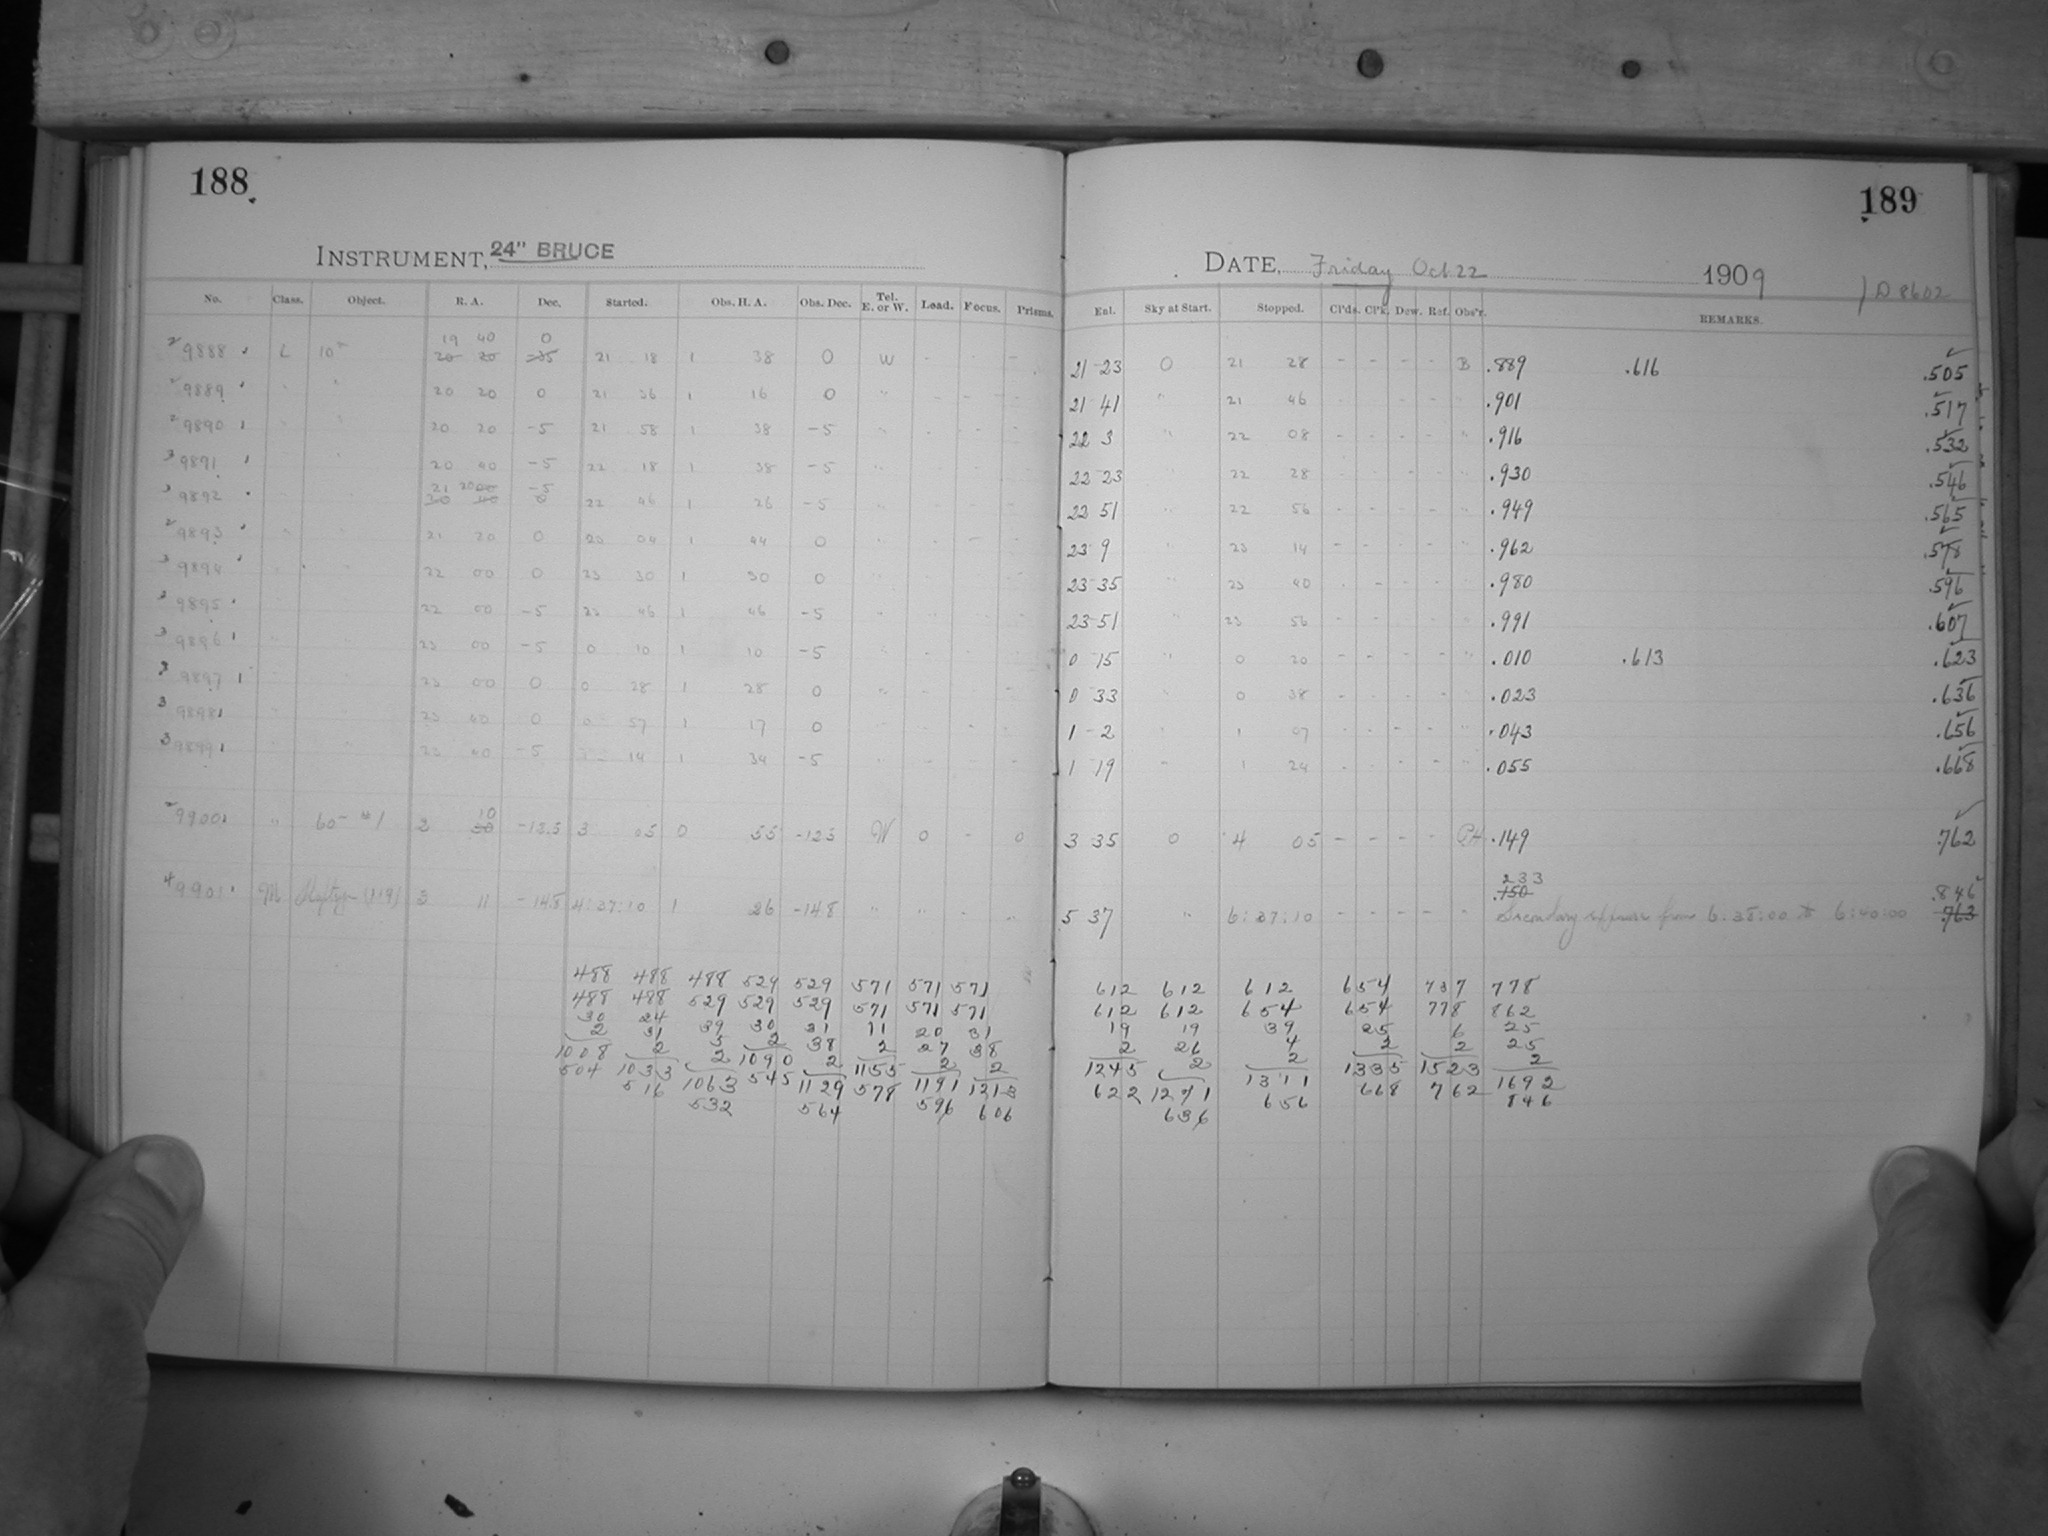 188
189
INSTRUMENT, 24" BRUCE
DATE, Friday Oct 22 1909
D 8602
No. Class. Object. R. A. Dec. Started. Obs. H. A. Obs. Dec. Tel. E. or W. Load. Focus. Prisms. Eal. Sky at Start. Stopped. Cl'ds. Cl'k. Dew. Ref. Obs'r. REMARKS.
19 40 0
9888 L 10m 20 20 -35 21 18 1 38 0 W - - - 21 23 0 21 28 - - - - B .889 .616 .505
9889 " " 20 20 0 21 36 1 16 0 " - - - 21 41 " 21 46 - - - - " .901 .517
9890 " " 20 20 -5 21 58 1 38 -5 " - - - 22 3 " 22 08 - - - - " .916 .532
9891 " " 20 40 -5 22 18 1 38 -5 " - - - 22 23 " 22 28 - - - - " .930 .546
21 20 -5
9892 22 46 1 26 -5 " - - - 22 51 " 22 56 - - - - " .949 .565
9893 " " 21 20 0 23 04 1 44 0 " - - - 23 9 " 23 14 - - - - " .962 .578
9894 " " 22 00 0 23 30 1 30 0 " - - - 23 35 " 23 40 - - - - " .980 .596
9895 " " 22 00 -5 23 46 1 46 -5 " - - - 23 51 " 23 56 - - - - " .991 .607
9896 " " 23 00 -5 0 10 1 10 -5 " - - - 0 15 " 0 20 - - - - " .010 .613 .623
9897 " " 23 00 0 0 28 1 28 0 " - - - 0 33 " 0 38 - - - - " .023 .636
9898 " " 23 40 0 0 57 1 17 0 " - - - 1 2 " 1 07 - - - - " .043 .656
9899 " " 23 40 -5 14 1 34 -5 " - - - 1 19 " 1 24 - - - - " .055 .668
10
9900 " 60m #1 2 30 -12.5 3 05 0 55 -12.5 W 0 - 0 3 35 0 4 05 - - - - .149 .762
233 .846
9901 M 3 11 -14.8 4:37:10 1 26 -14.8 " " - - 5 37 " 6:37:10 - - - - - .150 Secondary exposure from 6:38:00 to 6:40:00 .763
488 488 488 529 529 571 571 571 612 612 612 654 737 778
488 488 529 529 529 571 571 571 612 612 654 654 778 862
30 24 39 30 31 11 20 31 19 19 39 25 6 25
2 31 5 2 38 2 27 38 2 26 4 2 2 25
1008 2 2 1090 2 1155 2 2 1245 2 2 1335 1523 2
504 1033 1063 545 1129 578 1191 1213 622 1271 1311 668 762 1692
516 532 564 596 606 636 656 846